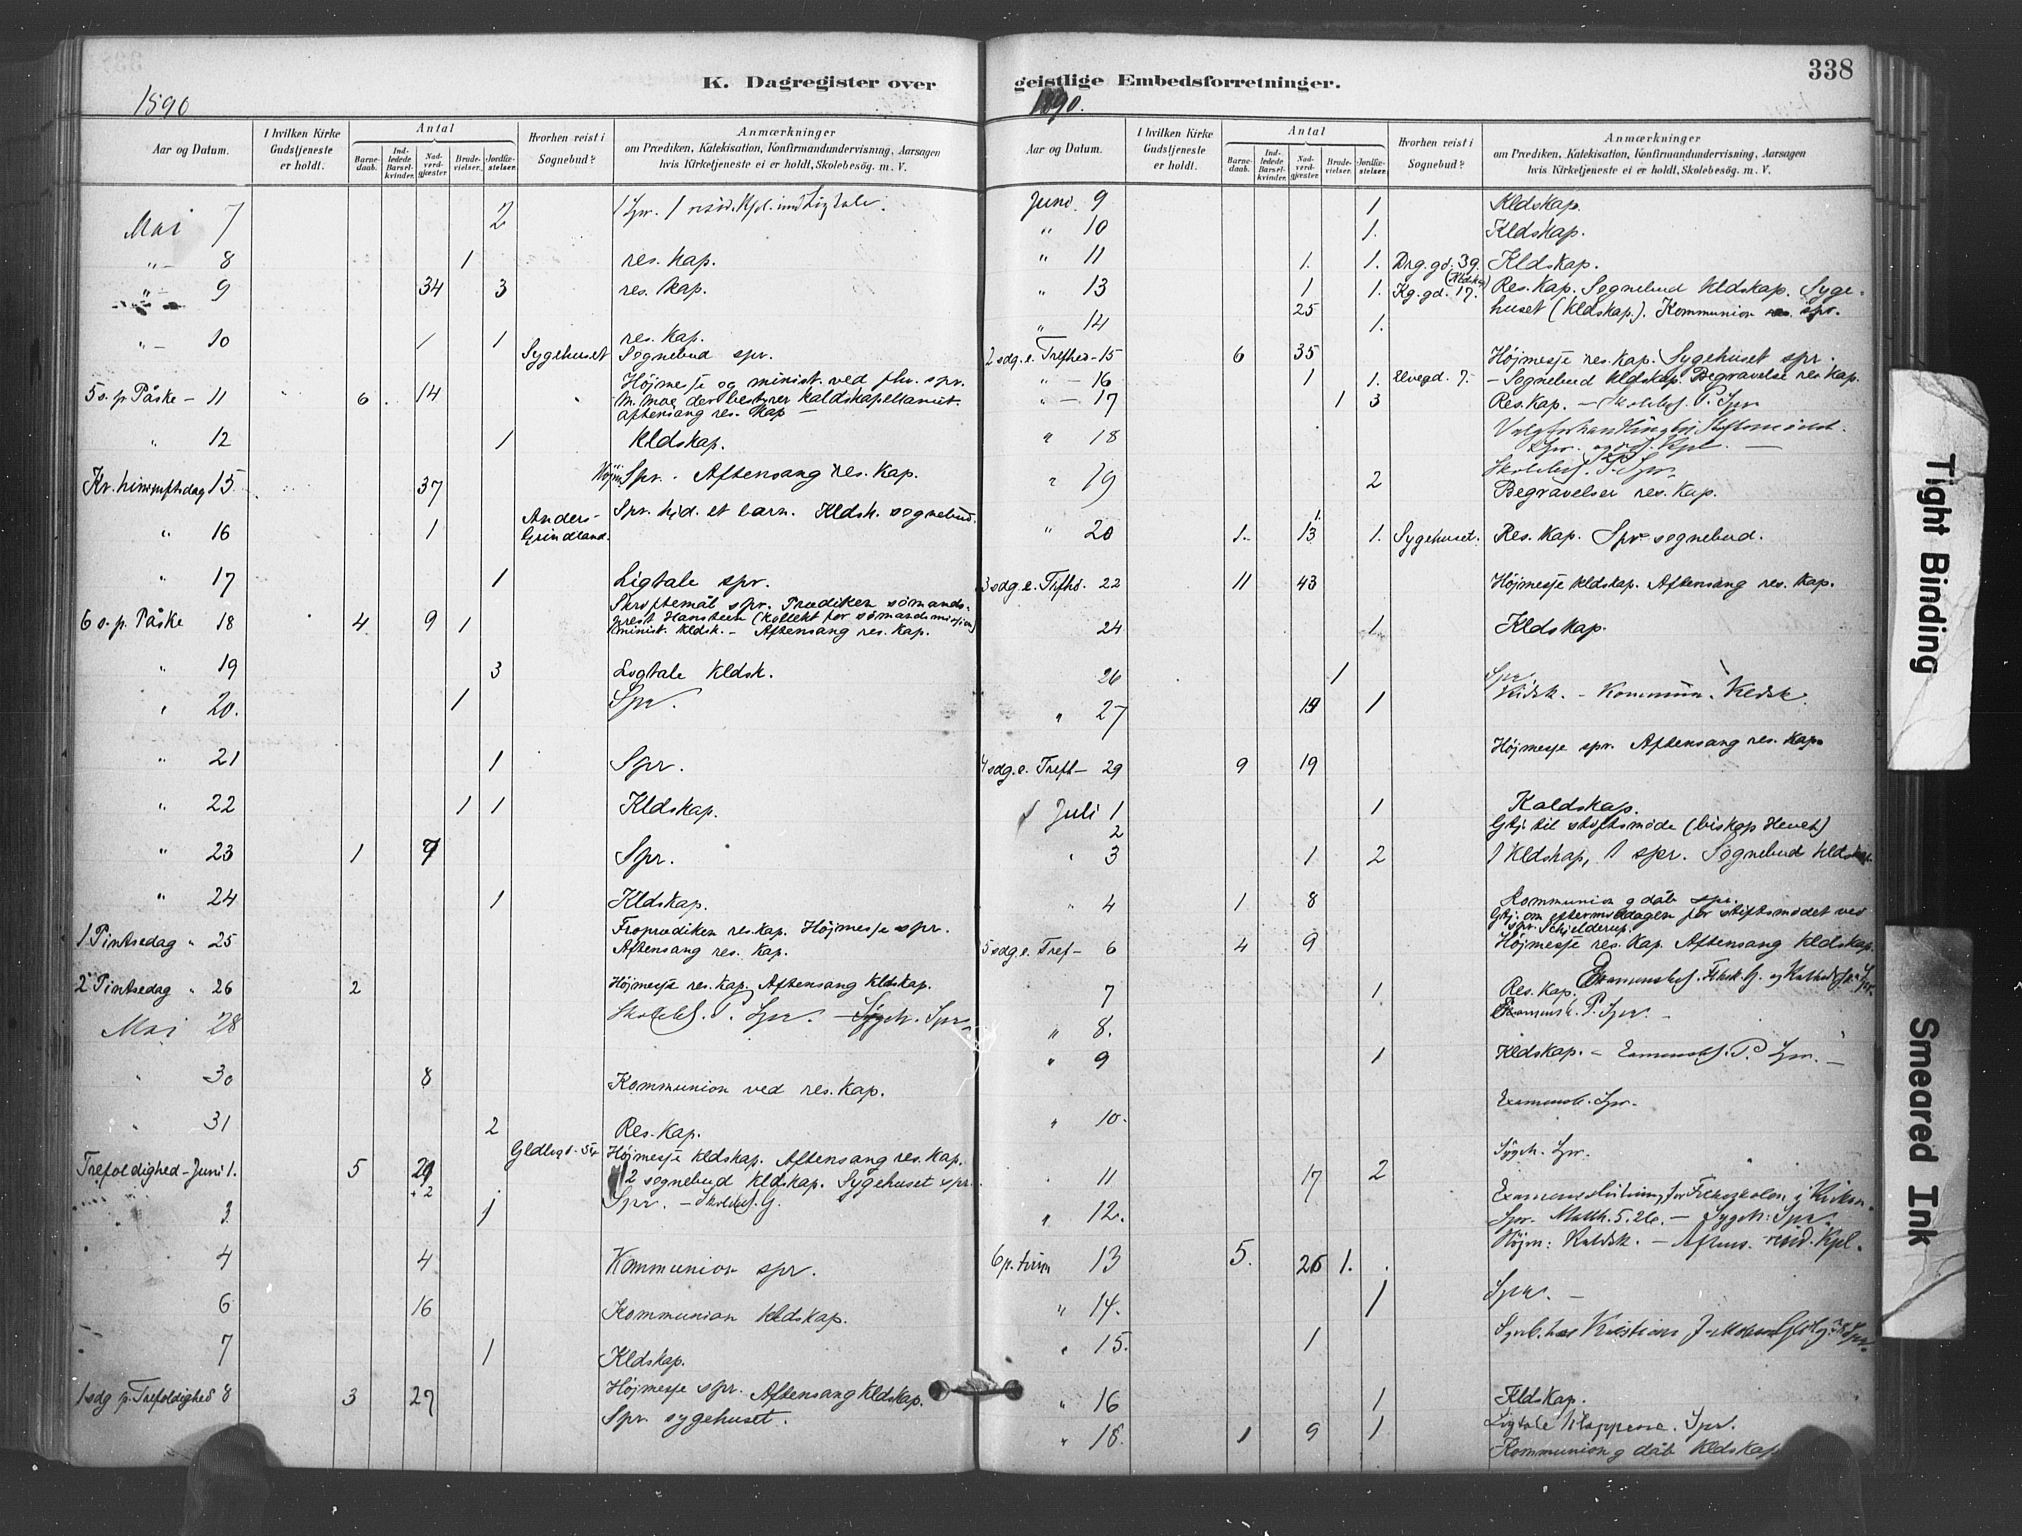 K. Dagregister over
1890
Aar og Datum.
I hvilken Kirke Gudstjeneste er holdt.
Antal
Barnedaab.
Indledede Barselkvinder.
Nadverdgjæster
Brudevielser.
Jordfæstelser.
Hvorhen reist i Sognebud?
Anmærkninger
om Prædiken, Katekisation, Konfirmandundervisning, Aarsagen
hvis Kirketjeneste ei er holdt, Skolebesøg. m. V.
Mai 7 2 1 Spr. 1 resid. Kpl. med Ligtale.
" 8 1 res. kap.
" 9 34 3 res. kap.
" 10 1 1 res. kap.
Sygehuset Sognebud spr.
Højmesse og minist. ved spr.
5 s. p. Påske - 11 6 14 m. moe der bestyrer kaldskapellaniet.
aftensang res. kap -
" 12 1 Kldskap.
Kr. himmelftsdag 15 37 Højm Spr. Aftensang res. Kap.
" 16 1 Anders Grindland. Spr. hjd. et barn. Kldsk. sognebud.
" 17 1 Ligtale spr.
Skriftemål spr. Prædiken sömands-
6 s. p. Påske 18 4 9 1 prest Hansteen (Kollekt for sömandsmission)
minist. Kldsk. - Aftensang res. Kap.
" 19 3 Ligtale Kldsk.
" 20. 1 Spr.
" 21 1 Spr.
" 22 1 1 Kldskap.
" 23 1 7 Spr.
" 24 1 Kldskap.
1 Pintsedag " 25 Froprædiken res. kap. Höjmesse spr.
Aftensang res. Kap.
2 Pintsedag " 26 2 Højmesse res. kap. Aftensang Kldskap.
Mai 28 Skolebes. P. Spr. - Sygeh. Spr.
" 30 8 Kommunion ved res. Kap.
" 31 2 Res. Kap.
Trefoldighed - Juni 1. 5 29 + 2 Højmesse kldskap. Aftensang res. Kap.
2 sognebud Kldskap. Sygehuset spr.
" 3 1 Spr. - Skolebes. G.
" 4 4 Kommunion spr.
6 16 Kommunion kldskap.
" 7 1 Kldskap.
1 sdg p. Trefoldighed 8 3 27 Højmesse spr. Aftensang Kldskap.
Spr. sygehuset.
geistlige Embedsforretninger.
338
1890.
Aar og Datum.
I hvilken Kirke Gudstjeneste er holdt.
Antal
Barnedaab.
Indledede Barselkvinder.
Nadverdgjæster
Brudevielser.
Jordfæstelser.
Hvorhen reist i Sognebud?
Anmærkninger
om Prædiken, Katekisation, Konfirmandundervisning, Aarsagen
hvis Kirketjeneste ei er holdt, Skolebesøg. m. V.
Juni 9 1 Kldskap.
" 10 1. Kldskap.
" 11 1. 1. Drg. gd. 39. Kldskap.
(Kldskp)
" 13 1 1. Kg. gd. 17. Res. Kap. Sognebud Kldskap. Syge-
25 huset (Kldskap.). Kommunion spr.
" 14 1.
2 sdg. e. Trefhed - 15 6 35 Højmesse res. kap. Sygehuset spr.
" - 16 1 1. Elvegd. 7. - Sognebud kldskap. Begravelse res. Kap.
" - 17 1 3 Res. Kap. - Skolebes. P. Spr
" 18 Valgforhandling
Spr. Kpl. -
" 19 2 Skolebes. P. Spr.
Begravelser res. Kap.
1.
" 20 1. 13 1. Sygehuset. Res. Kap. Spr sognebud.
3 sdg. e. Trfhd. 22 11 43 Höjmesse kldskap. Aftensang res. Kap.
24 1 Kldskap.
26 1 Spr
" 27 19 1 Kldsk. - Kommunion. Kldsk.
Højmesse spr. Aftensang res. Kap.
4 sdg. e. Treft - 29 9 19
Juli 1 1 Kaldskap.
2 Gtj. til stiftsmøde (biskop Heuch)
" 3 1 2 1 Kldskap, 1 spr. Sognebud kldskap
" 4 1 8 Kommunion g dåb spr.
Gtj. om eftermiddagen før stiftsmødet ved
spr. Schjelderup.
5 sdg. e. Tref - 6 4 9 Højmesse res. Kap. Aftensang Kldskap.
7 1 Res. Kap. Examensbes.
" 8. Examensb. P. Spr. -
" 9 1 Kldskap. - Examensbes. P. Spr. -
" 10. Examensb. Spr.
" 11 17 2 Sygeh. Spr.
" 12. Examensslutning for Folkeskolen i Kirken.
Spr. Matth. 5. 26. - Sygeh: Spr.
6 p. trin 13 5. 26 1. Højm: Kaldsk. - Aftens. resid. Kpl.
" 14. 1 Spr. -
" 15. 1 Sgnb. hos Kristian
" 16 1 Kldskap.
" 18. 1 9 1 Ligtale Spr.
Kommunion g dåb kldskap
Tight Binding
Smeared Ink